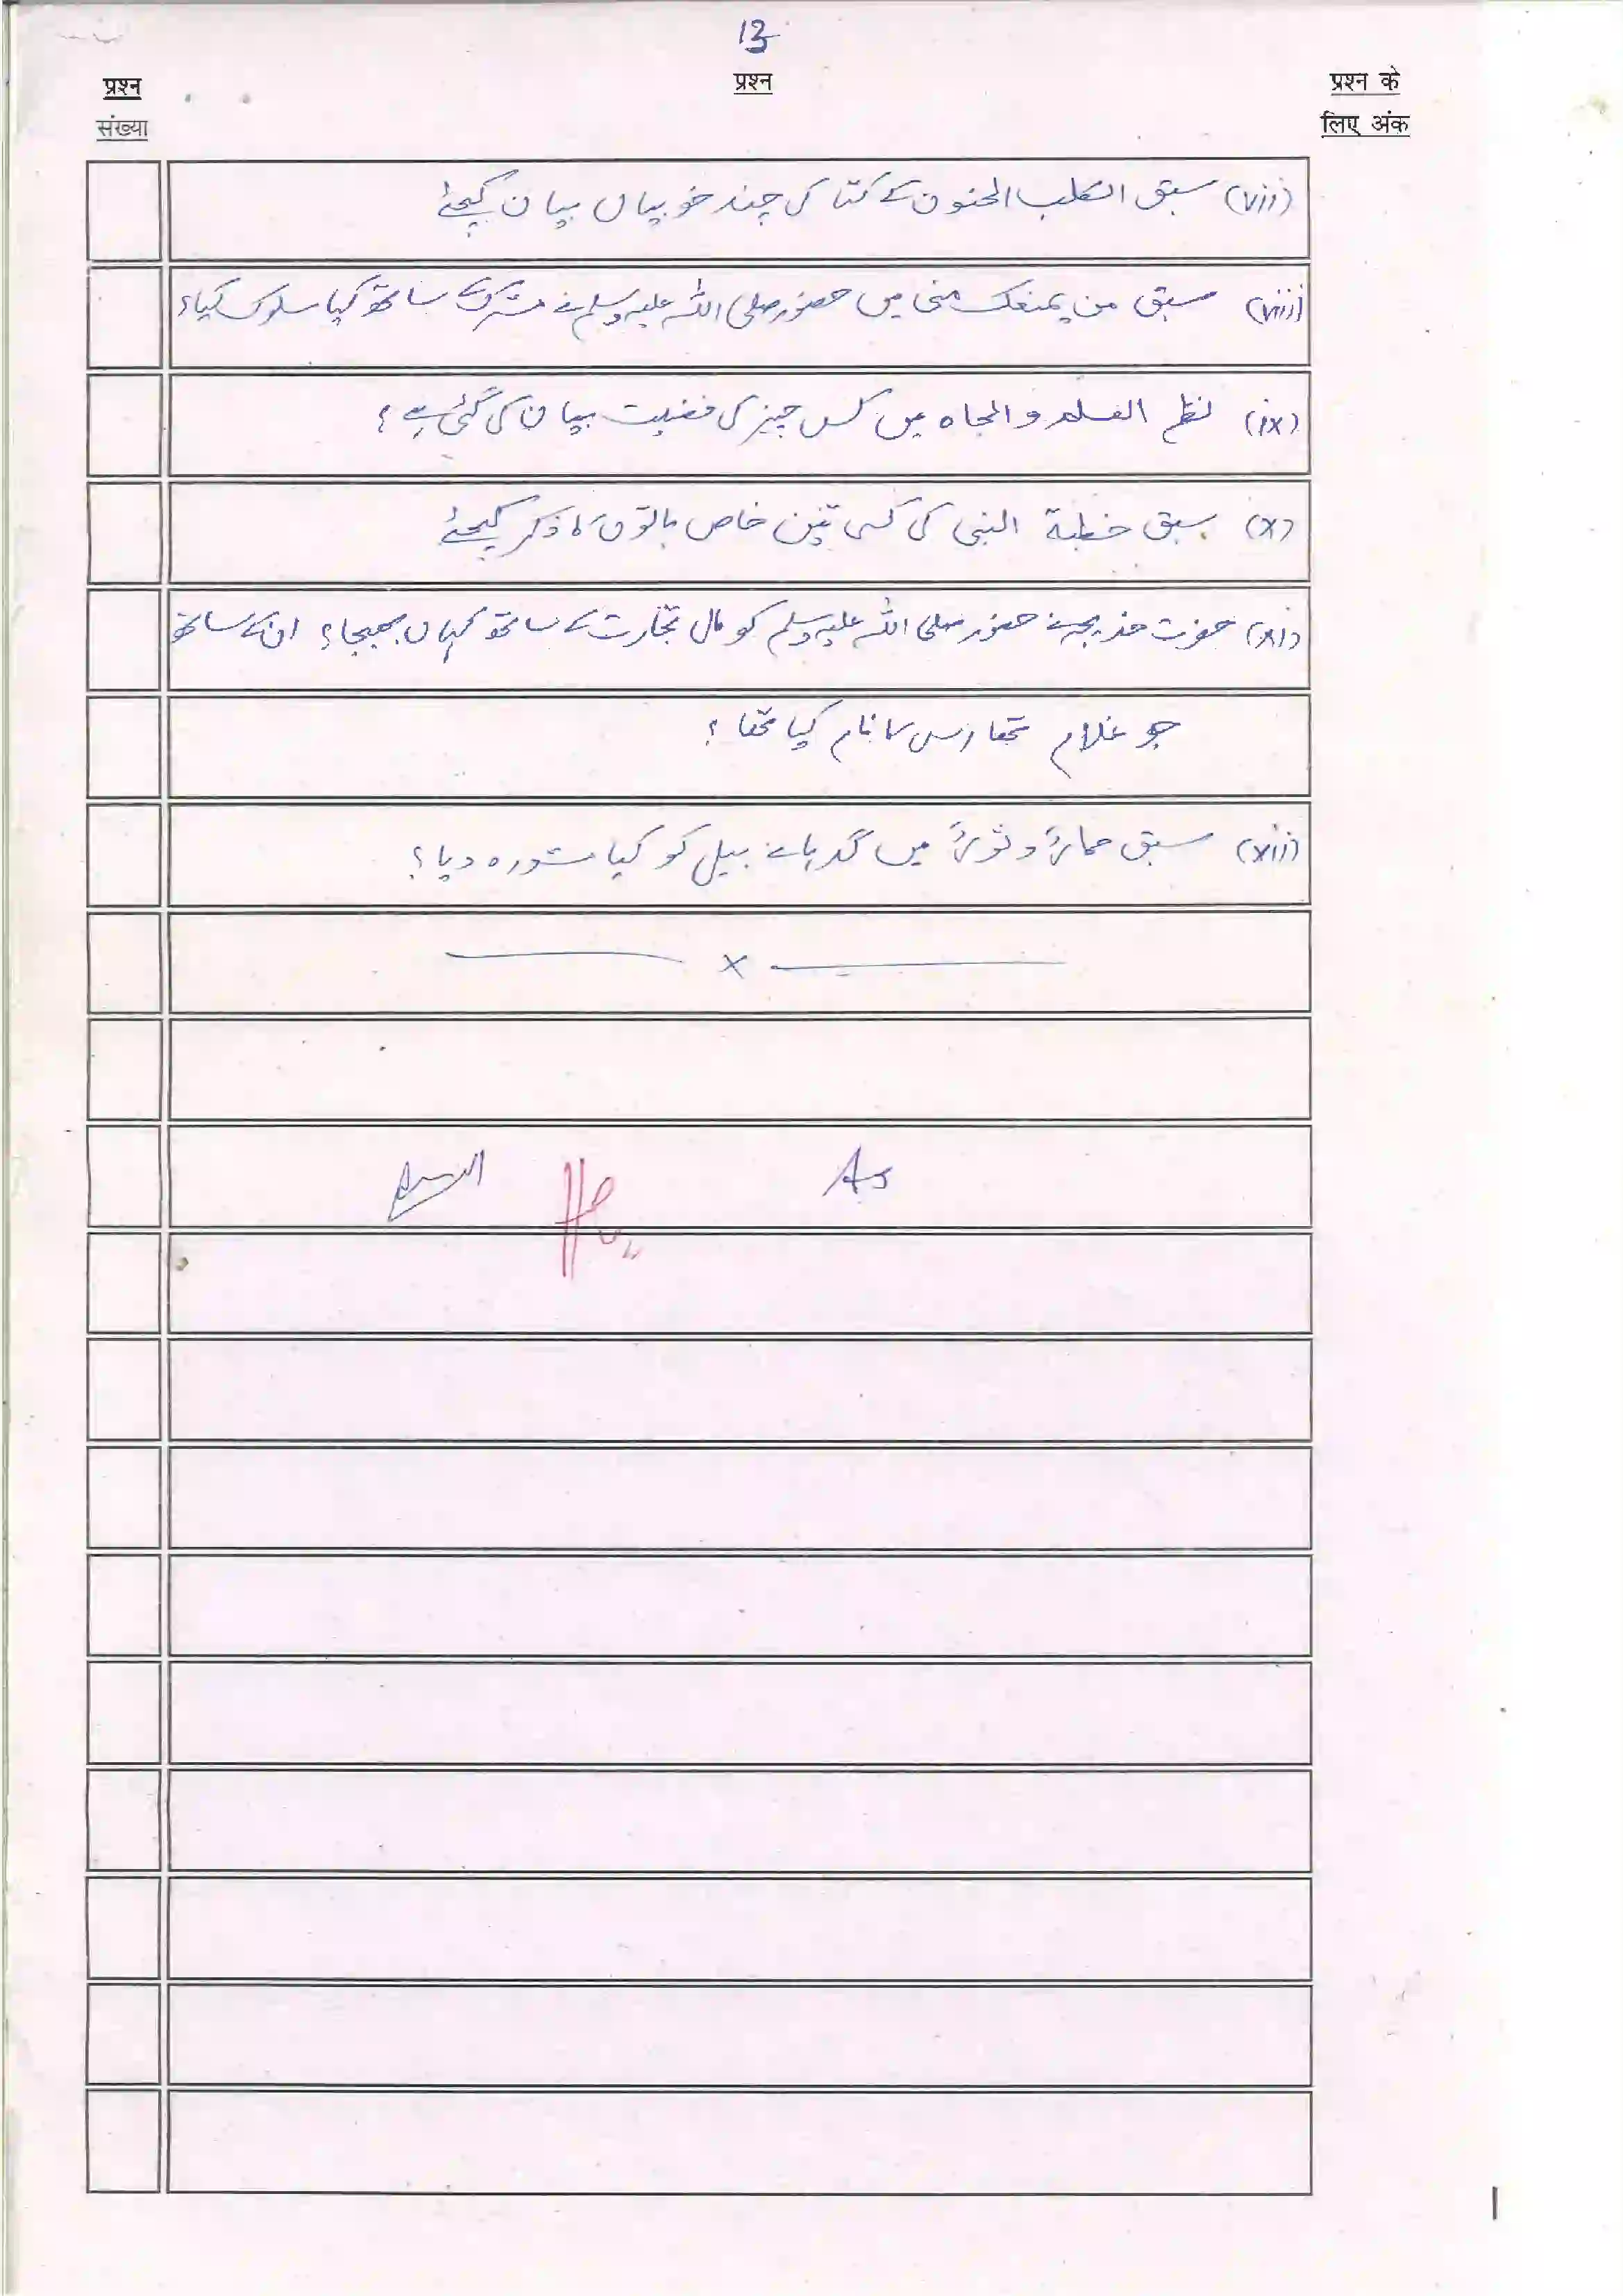 13
प्रश्न
संख्या
प्रश्न
प्रश्न के
लिए अंक
(vii) سبق الکلب الحنون کے کتا کی چند خوبیاں بیان کیجئے
(viii) سبق من یمنعک منی میں حضور صلی اللہ علیہ وسلم نے مشرک کے ساتھ کیا سلوک کیا؟
(ix) نظم العلم والجاہ میں کس چیز کی فضیلت بیان کی گئی ہے؟
(x) سبق خطبة النبی کی کسی تین خاص باتوں کا ذکر کیجئے
(xi) حضرت خدیجہ نے حضور صلی اللہ علیہ وسلم کو مال تجارت کے ساتھ کہاں بھیجا؟ ان کے ساتھ
جو غلام تھا اس کا نام کیا تھا؟
(xii) سبق حمارٌ و ثورٌ میں گدہا نے بیل کو کیا مشورہ دیا؟
x